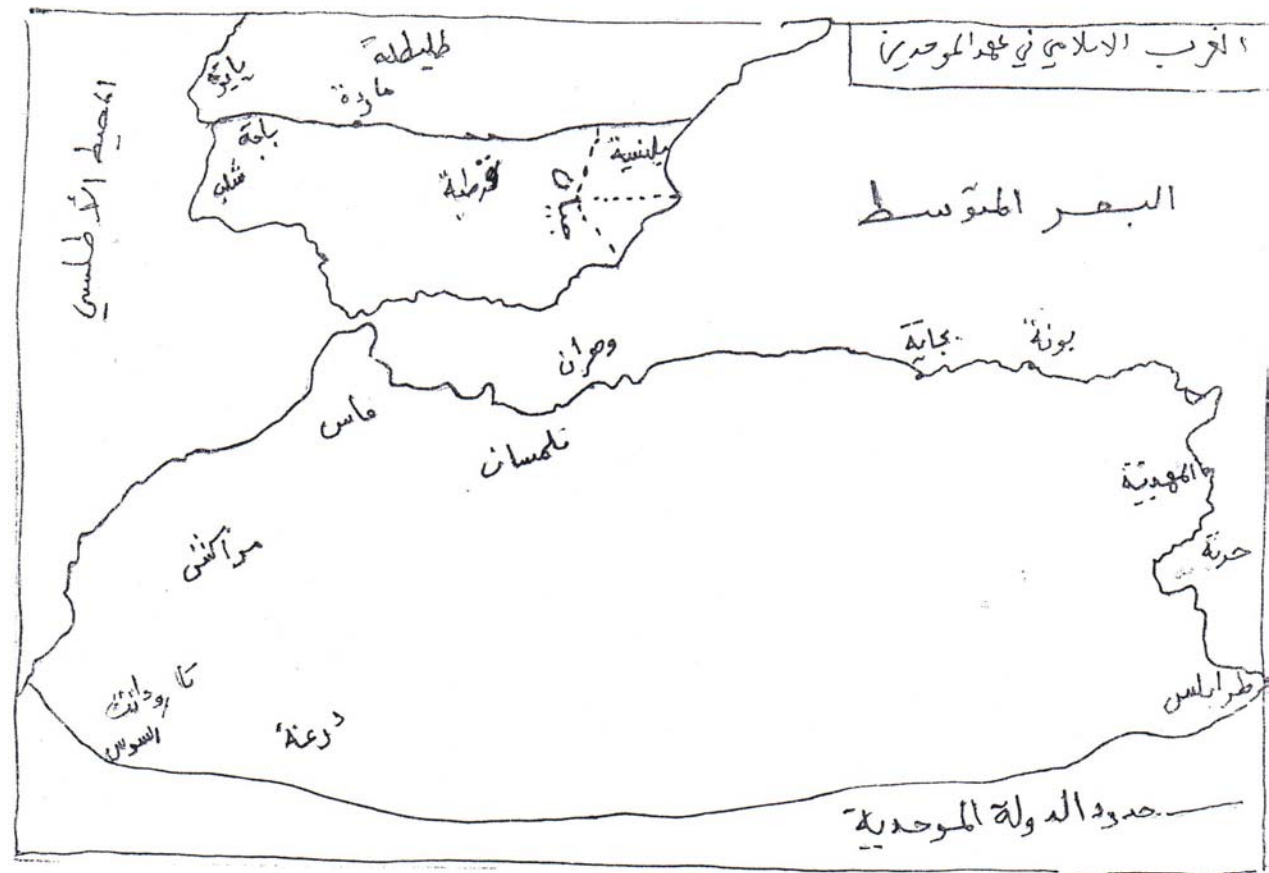 الغرب الاسلامي في عهد الموحدين
المحيط الأطلسي
البحر المتوسط
طليطلة
ماردة
باجة
شلب
قرطبة
بلنسية
وهران
بجاية
بونة
فاس
تلمسان
المهدية
جربة
مراكش
طرابلس
تارودانت
السوس
درعة
حدود الدولة الموحدية